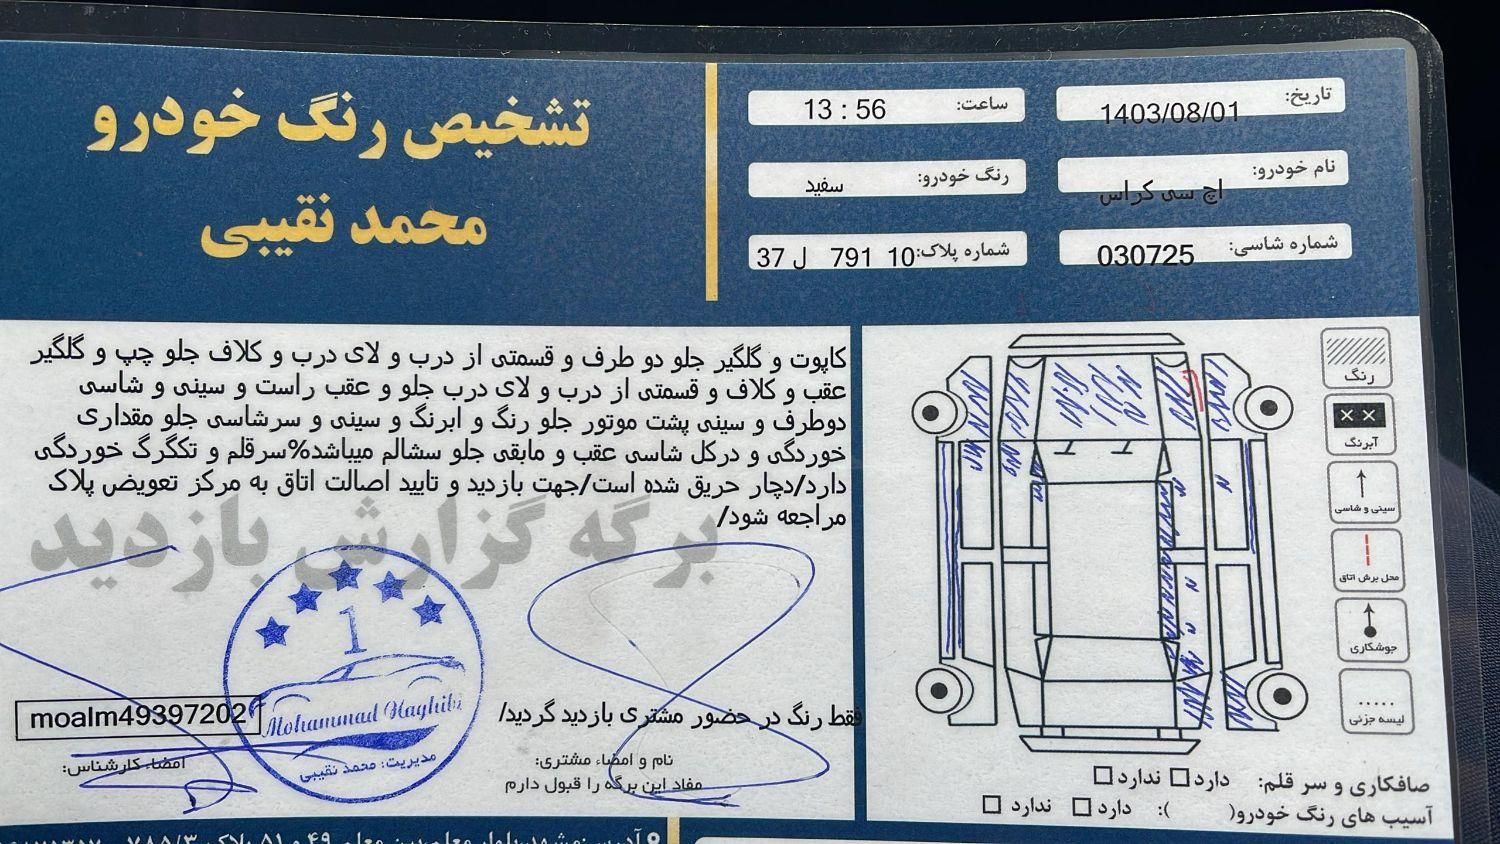 تشخیص رنگ خودرو
محمد نقیبی
تاریخ: 1403/08/01
ساعت: 13 : 56
نام خودرو: اچ سی کراس
رنگ خودرو: سفید
شماره شاسی: 030725
شماره پلاک: 10 791 ل 37
کاپوت و گلگیر جلو دو طرف و قسمتی از درب و لای درب و کلاف جلو چپ و گلگیر
عقب و کلاف و قسمتی از درب و لای درب جلو و عقب راست و سینی و شاسی
دوطرف و سینی پشت موتور جلو رنگ و ابرنگ و سینی و سرشاسی جلو مقداری
خوردگی و درکل شاسی عقب و مابقی جلو سشالم میباشد%سرقلم و تکگرگ خوردگی
دارد/دچار حریق شده است/جهت بازدید و تایید اصالت اتاق به مرکز تعویض پلاک
مراجعه شود/
برگه گزارش بازدید
1
Mohammad Naghibi
مدیریت: محمد نقیبی
moalm49397202
فقط رنگ در حضور مشتری بازدید گردید/
امضاء کارشناس:
نام و امضاء مشتری:
مفاد این برگه را قبول دارم
رنگ
آبرنگ
سینی و شاسی
محل برش اتاق
جوشکاری
لیسه جزئی
صافکاری و سر قلم: دارد ☐ ندارد ☐
آسیب های رنگ خودرو( ): دارد ☐ ندارد ☐
آدرس: مشهد، بلوار معلم، بین معلم ۴۹ و ۵۱ پلاک ۷۸۵/۳